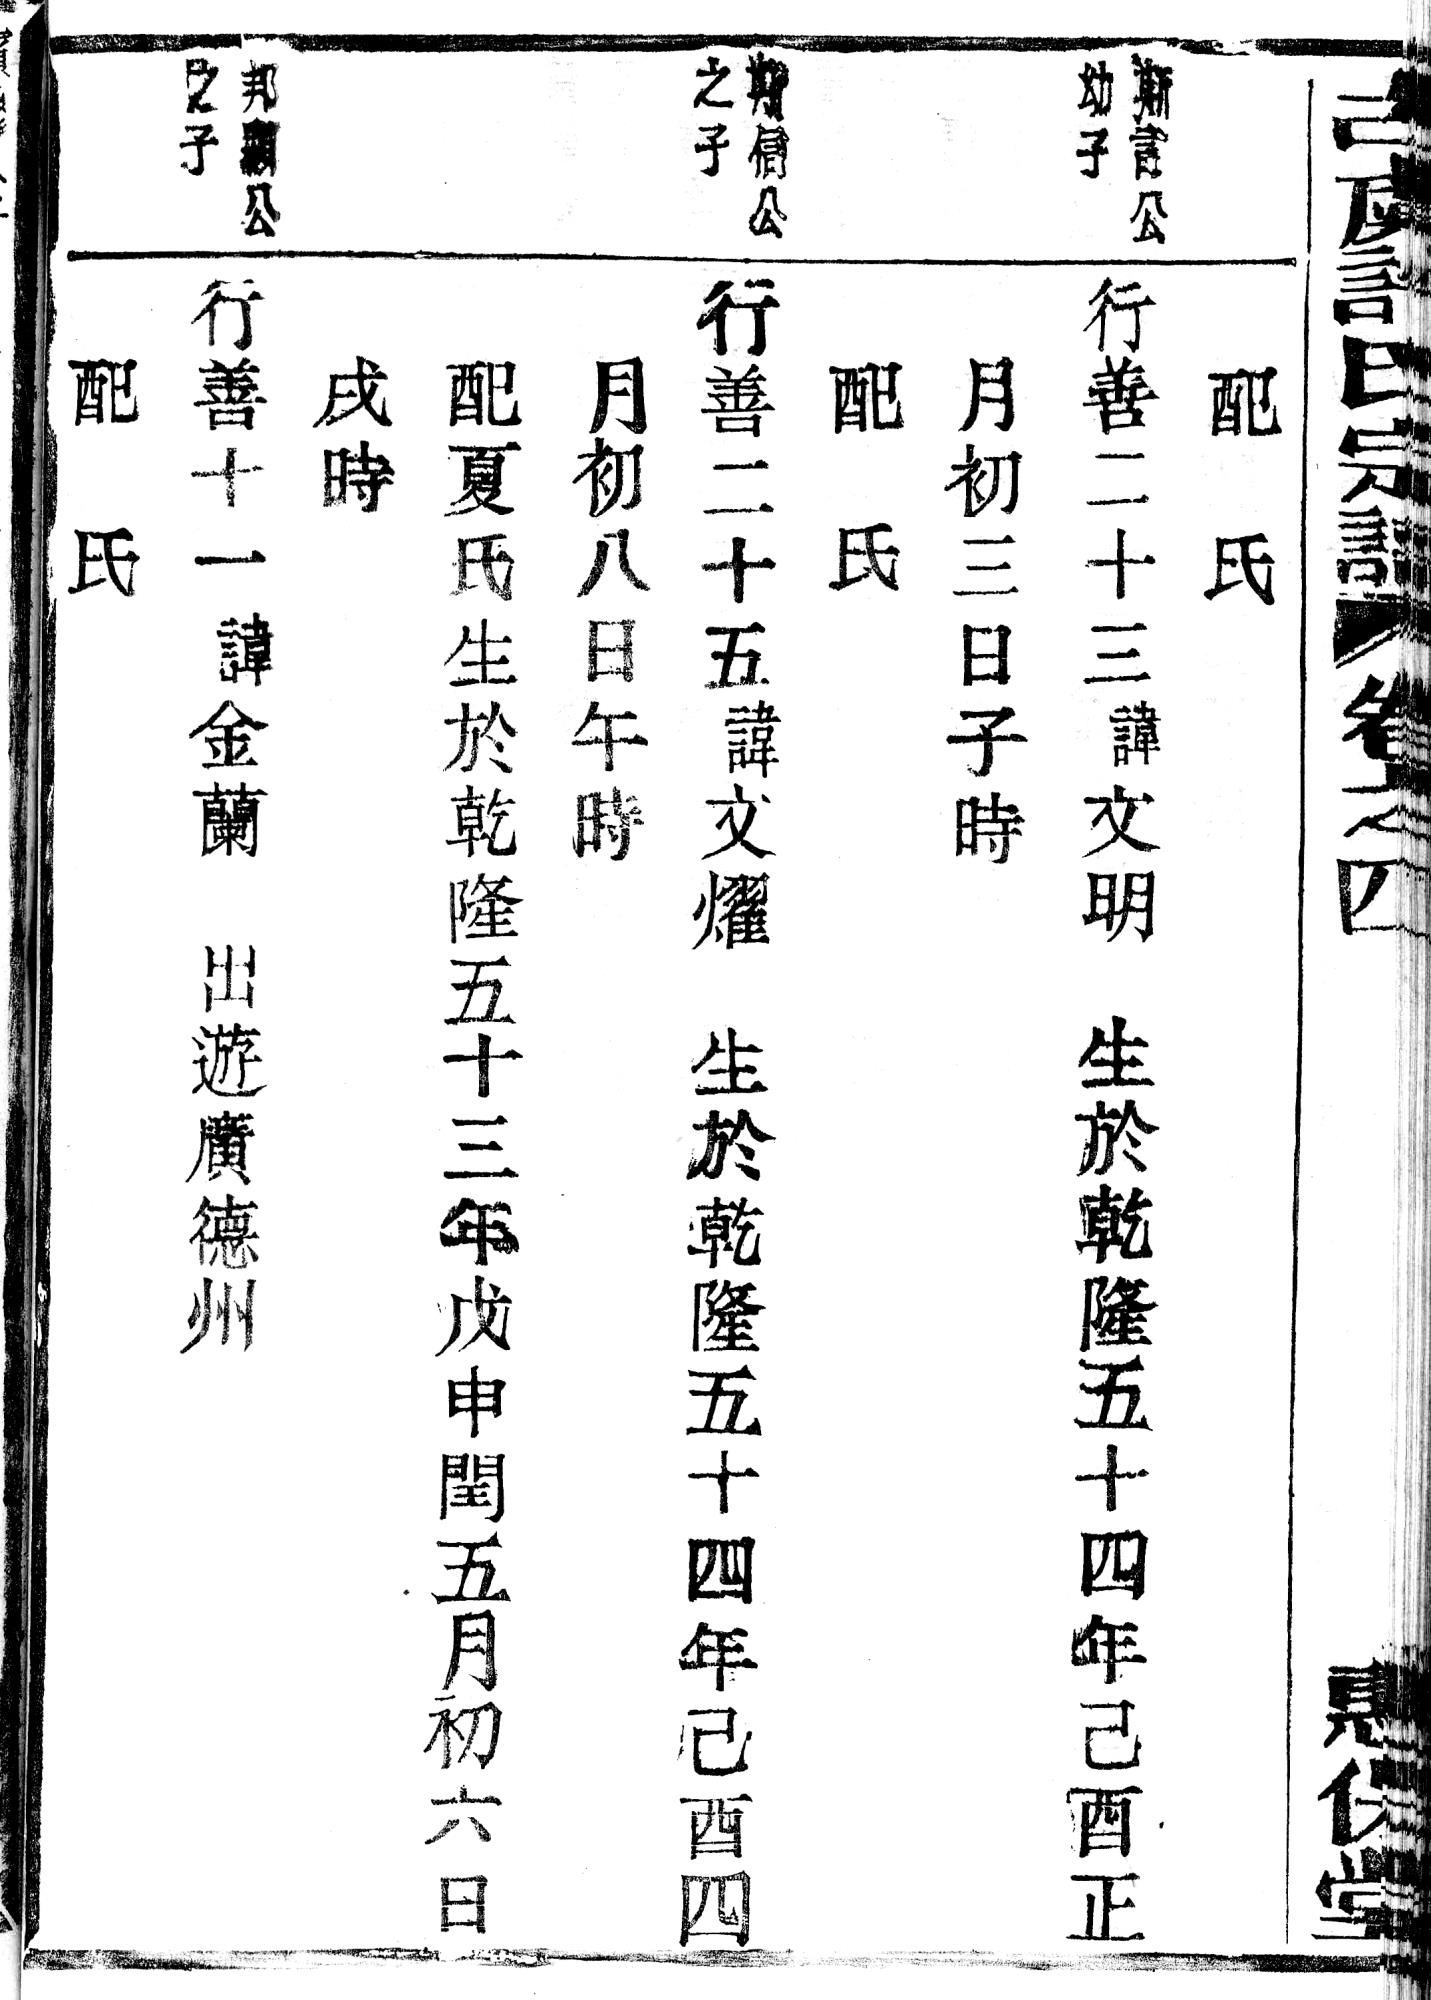 氏宗譜 卷之四
堂
配 氏
公
幼子
行善二十三諱文明 生於乾隆五十四年己酉正
月初三日子時
配 氏
信公
之子
行善二十五諱文燿 生於乾隆五十四年己酉四
月初八日午時
配夏氏生於乾隆五十三年戊申閏五月初六日
戌時
邦顯公
之子
行善十一諱金蘭 出遊廣德州
配 氏